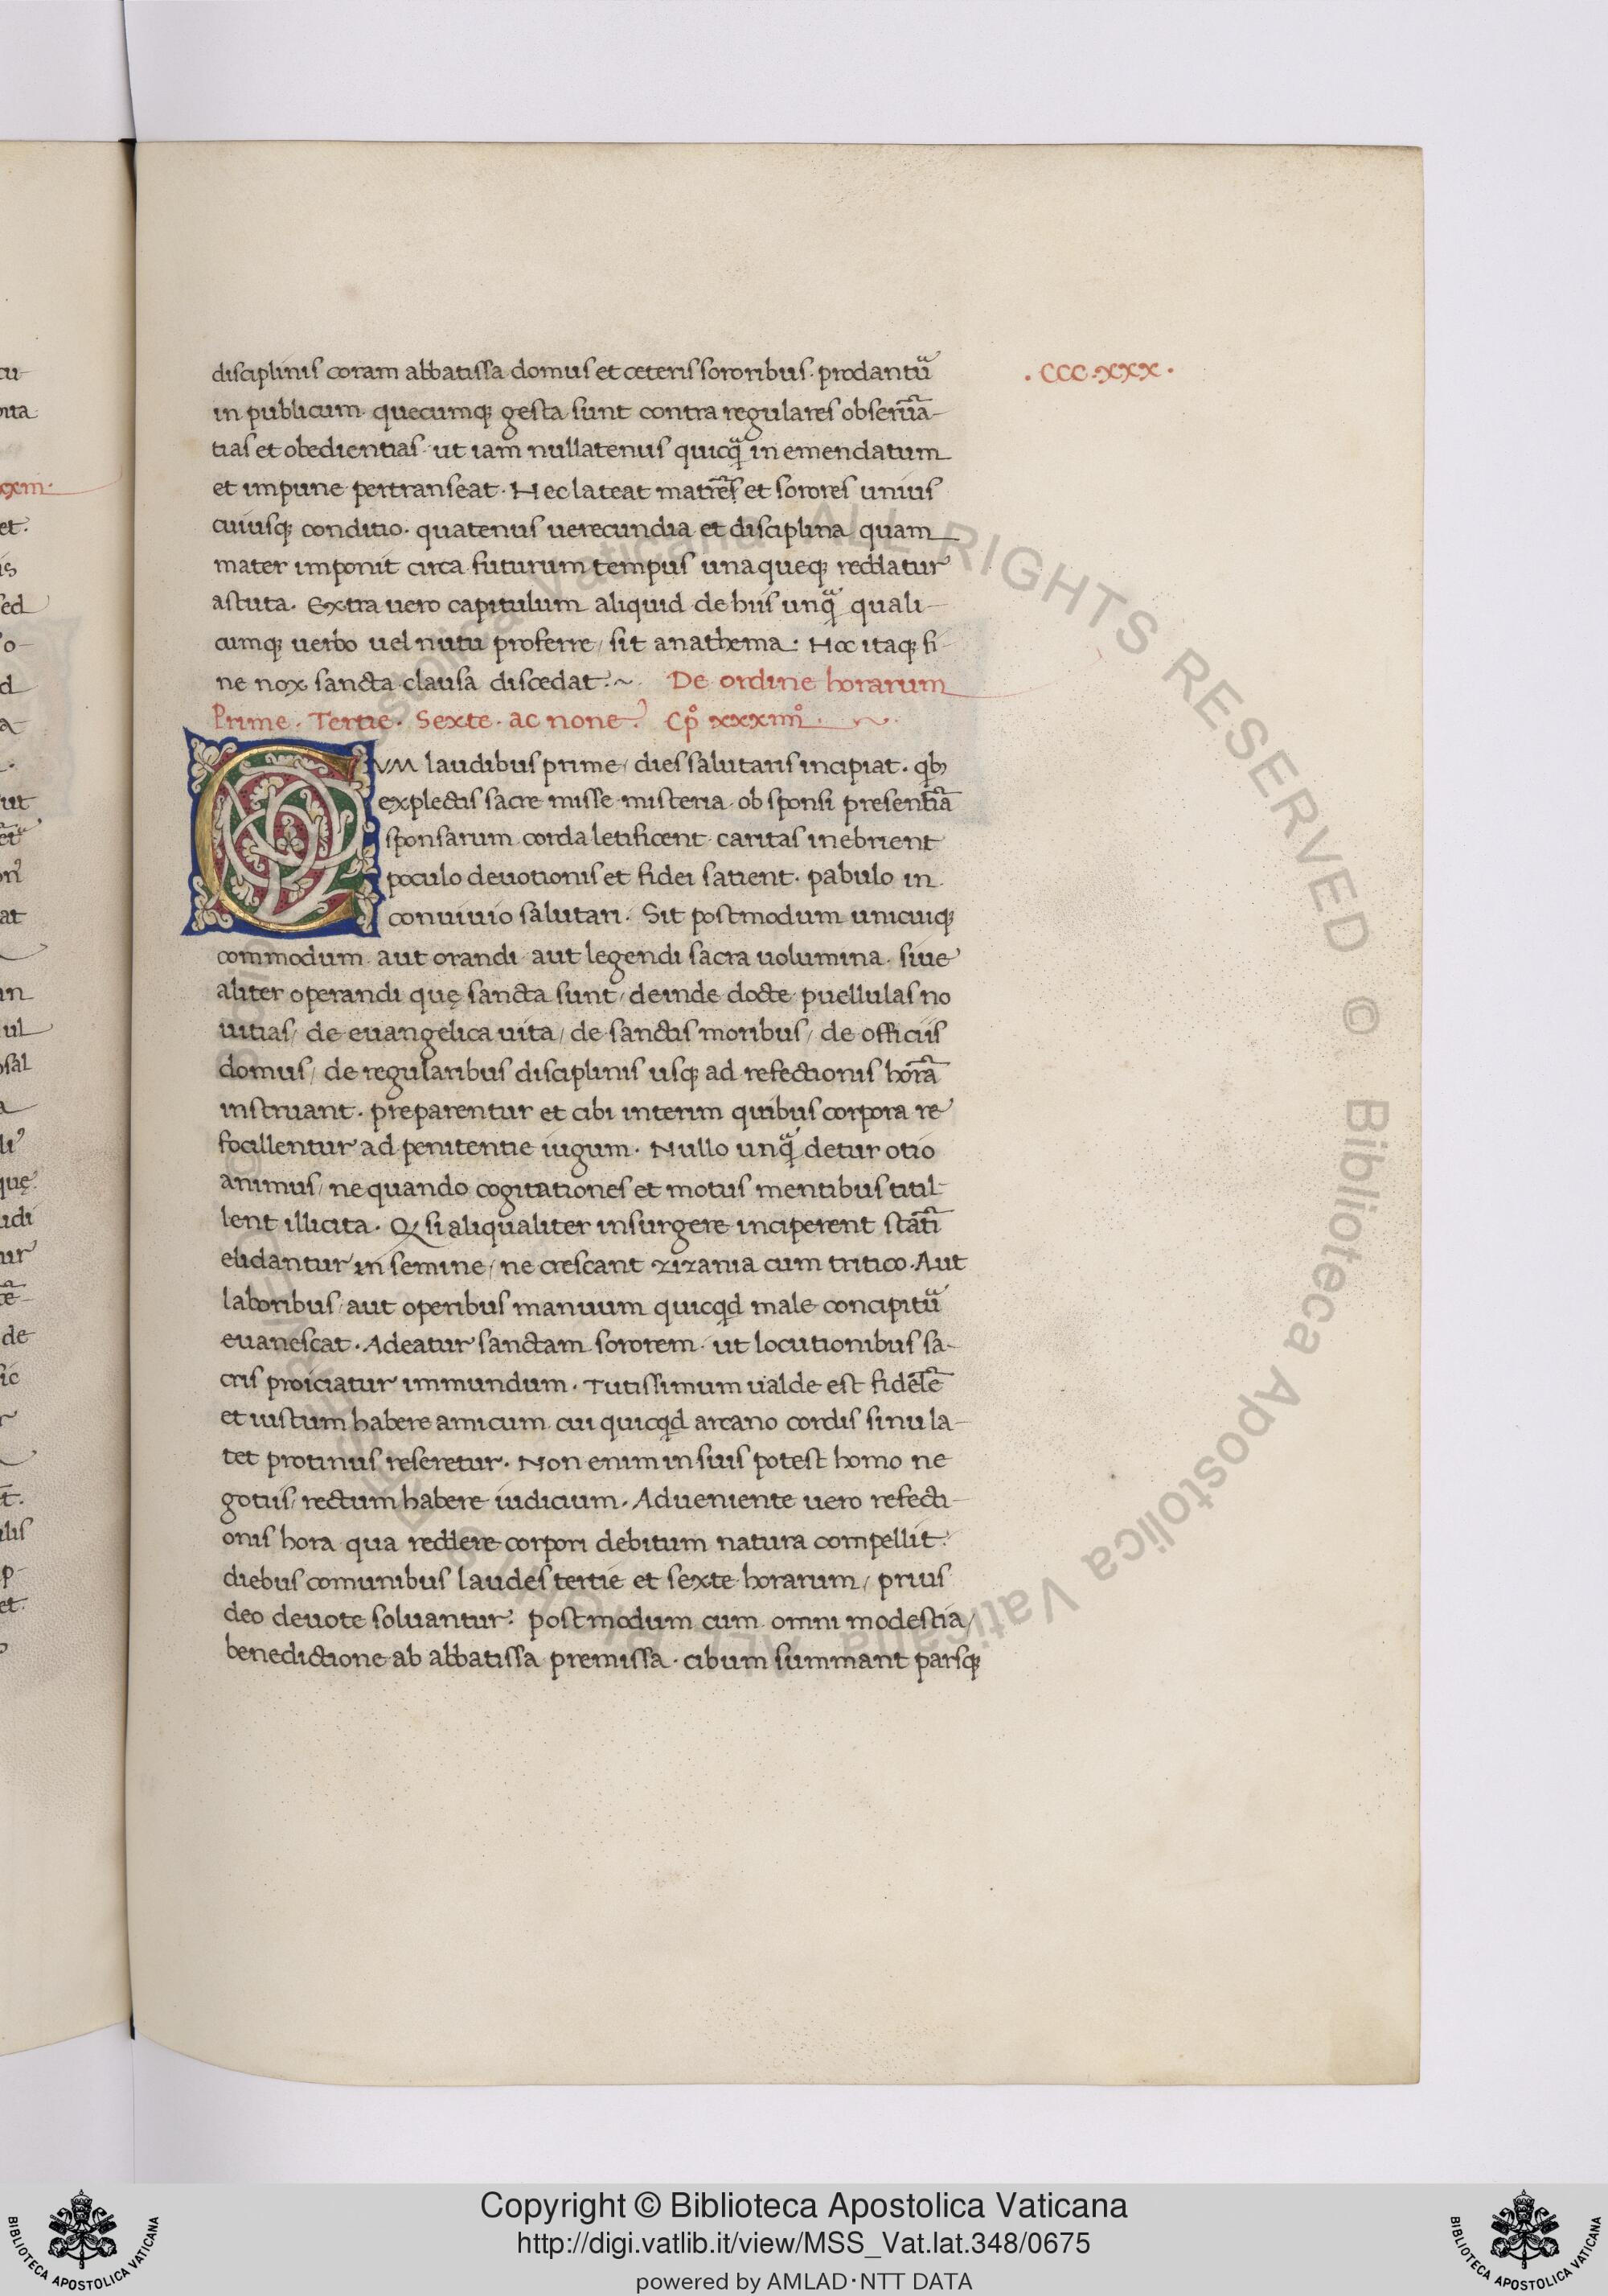 disciplinis coram abbatissa domus et ceteris sororibus. prodantũ
.CCC.xxx.
in publicum quecumq; gesta sunt contra regulares obseruã-
tias et obedientias. ut iam nullatenus quicq̃ in emendatum
et impune pertranseat. Nec lateat matres̃ et sorores unius
cuiusq; conditio. quatenus uerecundia et disciplina quam
mater imponit circa futurum tempus unaqueq; reddatur
astuta. Extra uero capitulum aliquid de hiis unq̃ quali-
cumq; uerbo uel nutu proferre/ sit anathema. Hoc itaq; fi-
ne nox sancta clausa discedat.~ De ordine horarum
Prime. Tertie. Sexte. ac none. Cp̊ xxxiiiı̊. ~.
CVM laudibus prime/ dies salutaris incipiat. qb;
explectis sacre misse misteria ob sponsi presentiã
sponsarum corda letificent caritas inebrient
poculo deuotionis et fidei satient. pabulo in
conuiuio salutari. Sit postmodum unicuiq;
commodum aut orandi aut legendi sacra uolumina. siue
aliter operandi quę sancta sunt/ deinde docte puellulas no
uitias/ de euangelica uita/ de sanctis moribus/ de officiis
domus/ de regularibus disciplinis usq; ad refectionis horã
instruant. preparentur et cibi interim quibus corpora re
focillentur ad penitentie iugum. Nullo unq̃ detur otio
animus/ ne quando cogitationes et motus mentibus titil-
lent illicita. Q si aliqualiter insurgere inciperent statĩ
elidantur in semine/ ne crescant zizania cum tritico. Aut
laboribus/ aut operibus manuum quicqd male concipitũ
euanescat. Adeatur sanctam sororem. ut locutionibus sa-
cris proiciatur immundum. Tutissimum ualde est fidelẽ
et iustum habere amicum cui quicqd arcano cordis sinu la-
tet protinus reseretur. Non enim in suis potest homo ne
gotiis/ rectum habere iudicium. Adueniente uero refecti-
onis hora qua reddere corpori debitum natura compellit.
diebus comunibus laudes tertie et sexte horarum/ prius
deo deuote soluantur. postmodum cum omni modestia/
benedictione ab abbatissa premissa. cibum summant parsq;
Copyright © Biblioteca Apostolica Vaticana
http://digi.vatlib.it/view/MSS_Vat.lat.348/0675
powered by AMLAD·NTT DATA
BIBLIOTECA APOSTOLICA VATICANA
BIBLIOTECA APOSTOLICA VATICANA